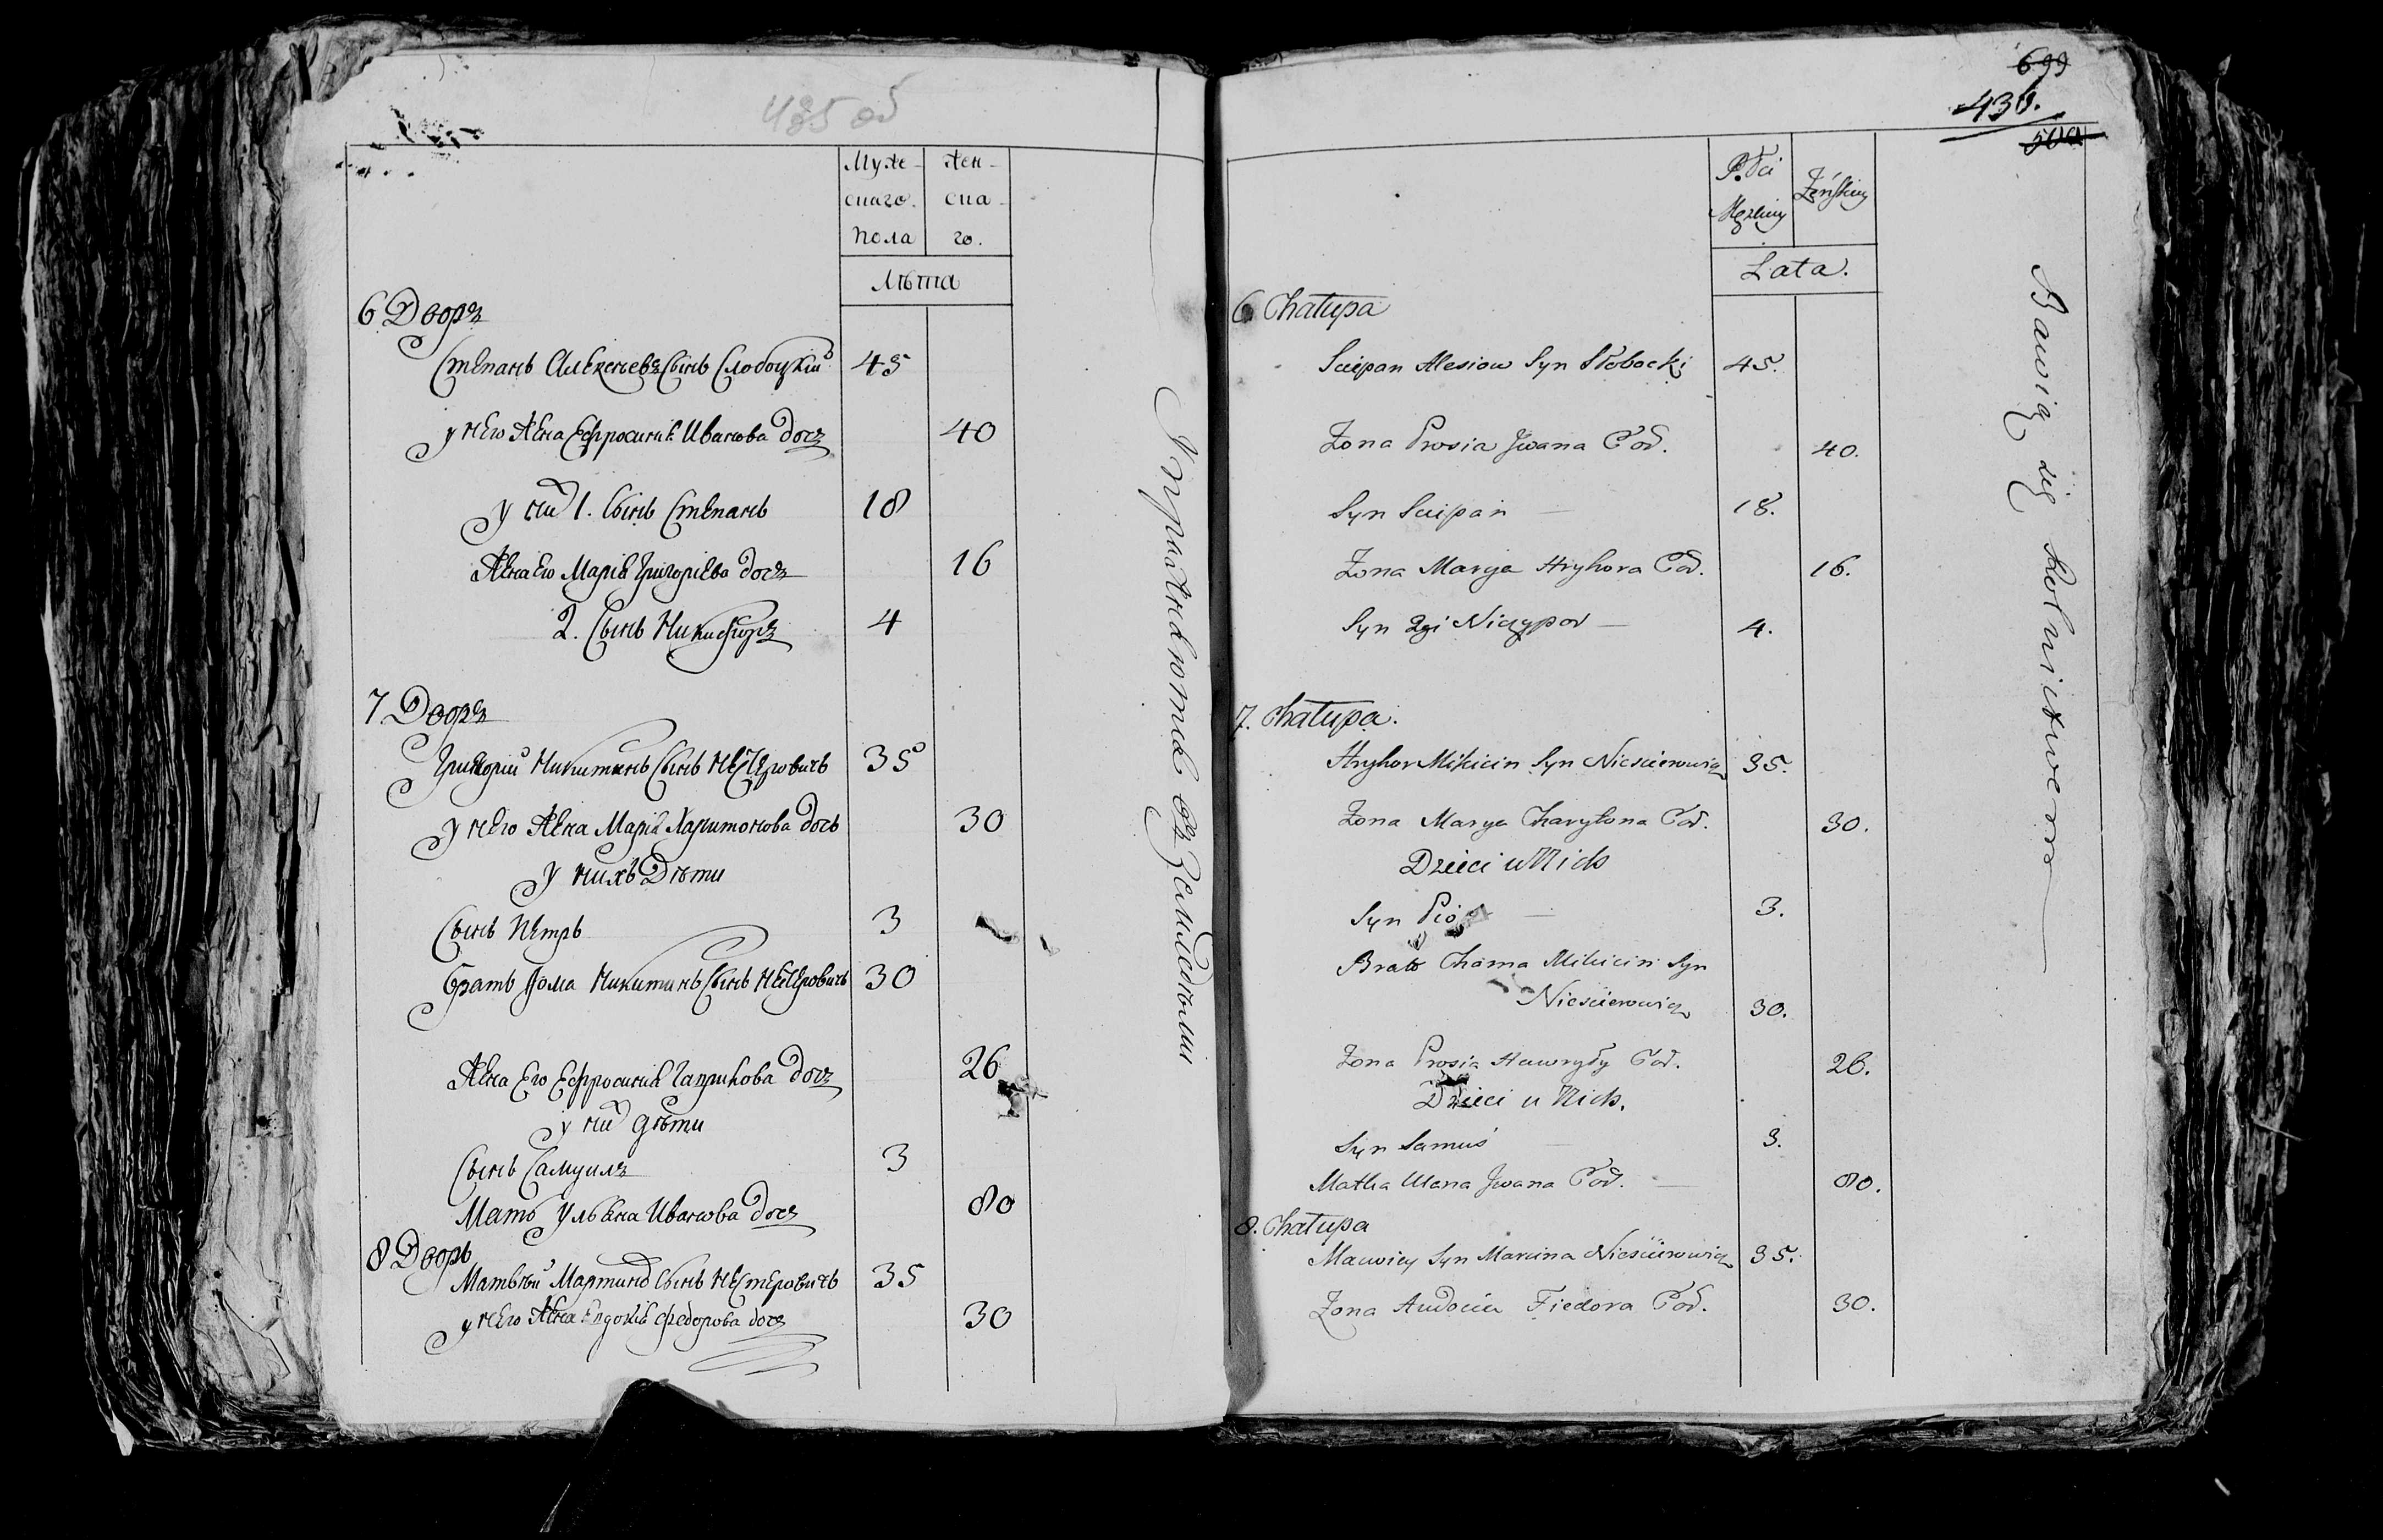 435 об
Муже-
скаго
Пола
Жен-
ска-
го.
Лѣта
6 Дворъ
Степанъ Алексѣевъ Сынъ Слободскій 45
у него Жена Ефросиніѣ Иванова дочъ 40
у ни 1. Сынъ Степанъ 18
Жена Его Маріѣ Григоріева дочъ 16
2. Сынъ Никифоръ 4
7 Дворъ
Григорій Никитинъ Сынъ Нестеровичъ 35
у него Жена Маріѣ Харитонова дочь 30
у нихъ Дѣти
Сынъ Петръ 3
Братъ Фома Никитинъ Сынъ Нестеровичъ 30
Жена Его Ефросиніѣ Гаврикова дочъ 26
у ни дѣти
Сынъ Самуилъ 3
Мать Ульѣна Иванова дочъ 80
8 Дворъ
Матвѣй Мартина Сынъ Нестеровичъ 35
у него Жена Евдокіѣ Федорова дочъ 30
Упражнѣютсѣ въ Земледѣліи
699
436.
P. Dci
Męzkiey
Żeńskiey
Lata.
6 Chałupa
Sciepan Alesiow Syn Słobocki 45.
Żona Prosia Jwana Cod. 40.
Syn Sciepan — 18.
Żona Marya Hryhora Cod. 16.
Syn 2gi Niczypor — 4.
7. Chałupa.
Hryhor Mikicin Syn Nieścierowicz 35.
Żona Marya Charytona Cod. 30.
Dzieci u Nich
Syn — 3.
Brat Chama Mikicin Syn
Nieścierowicz 30.
Żona Prosia Hawryły Cod. 26.
Dzieci u Nich.
Syn Samuś — 3.
Matka Ulana Jwana Cod. — 80.
8. Chałupa
Maciey Syn Marcina Nieścierowicz 35.
Żona Audocia Fiedora Cod. 30.
Bawią się Rolnictwem